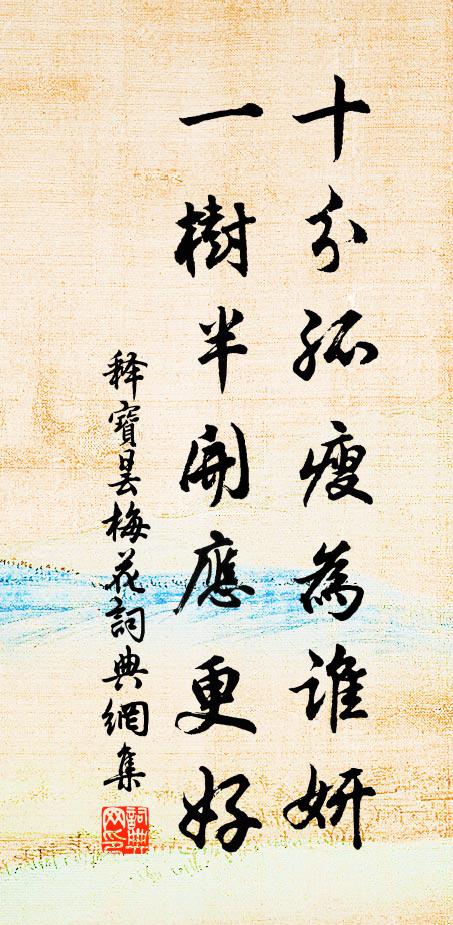 十分孤瘦為誰妍
一樹半開應更好
释寶曇梅花詞典網集